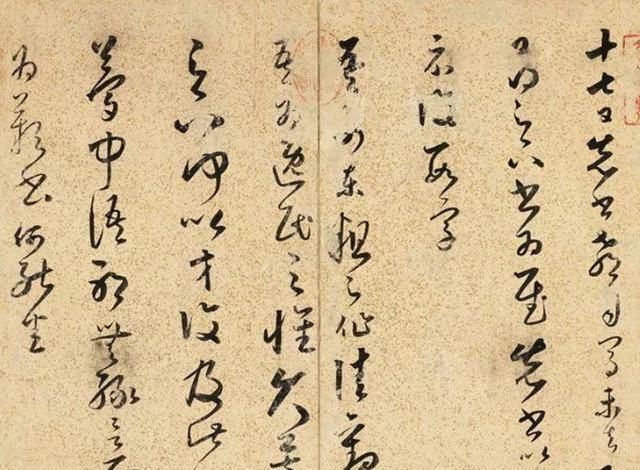 十七日先書郗司馬未去
日得足下書為慰先書以
示復數字
吾前東粗足作佳觀
吾為逸民之懷久矣
足下何以方復及此
夢中語耶無緣言
為歎書何能悉